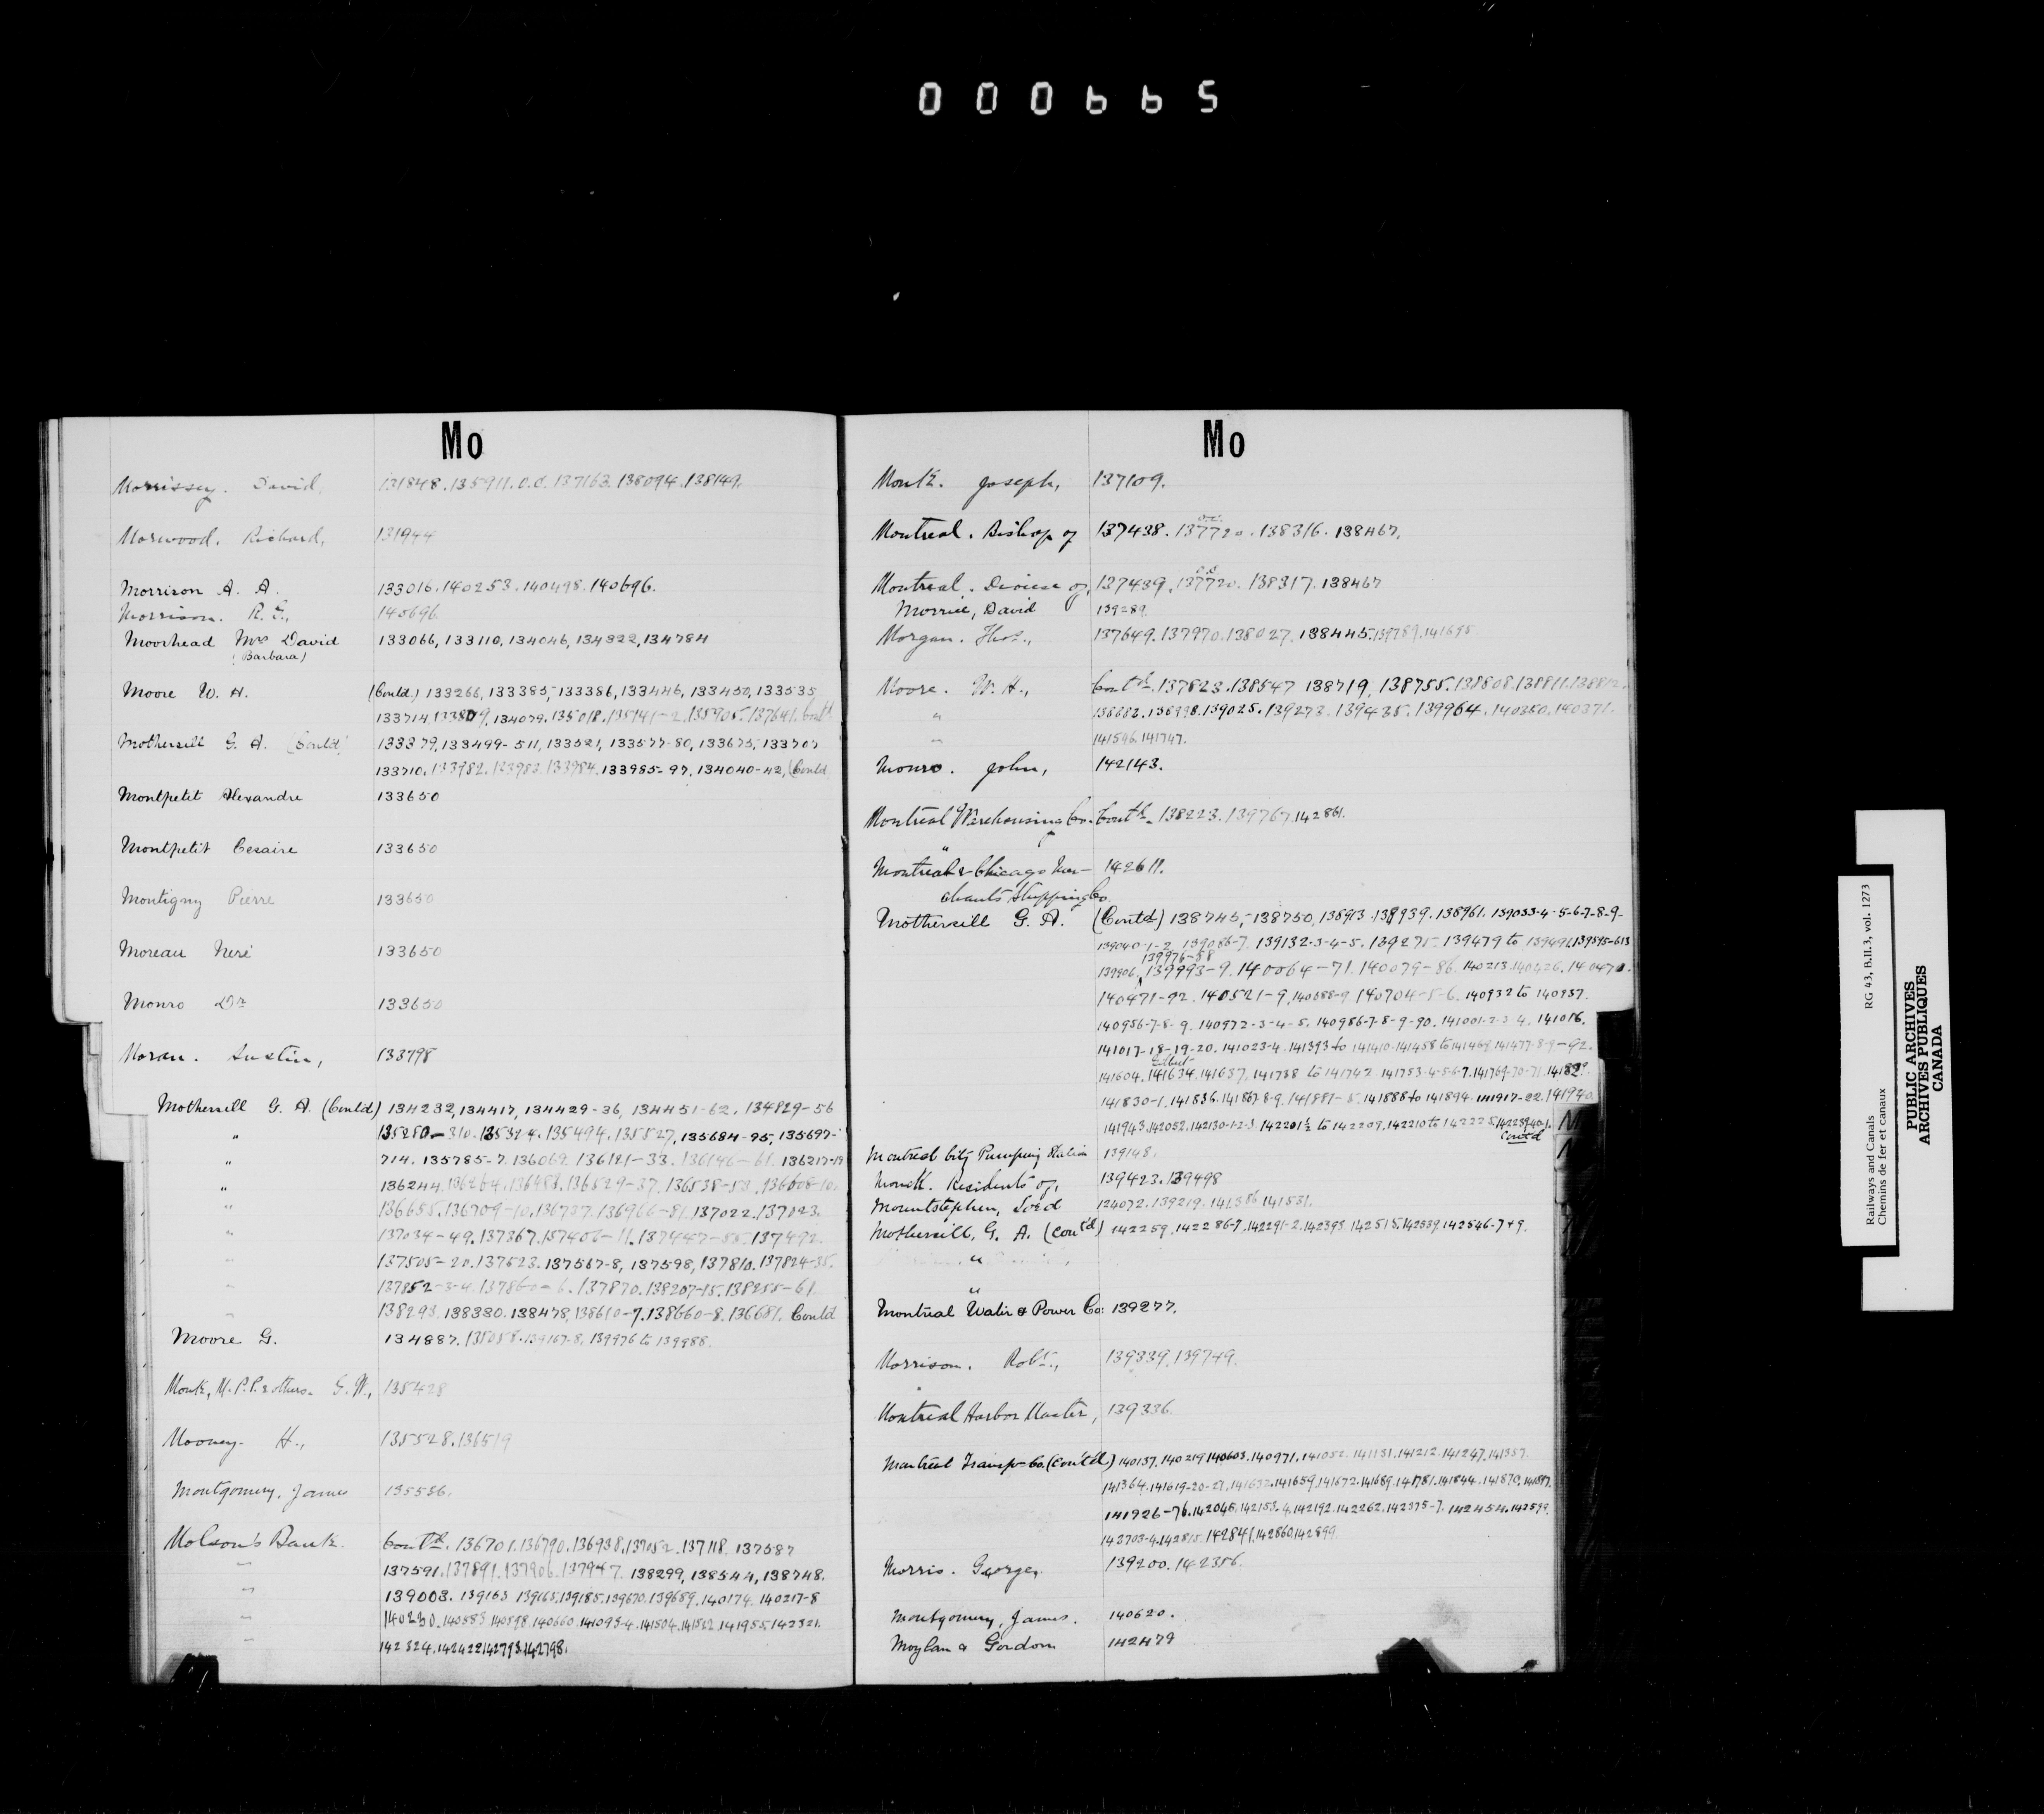 000665
Mo
Morrissey. David, 131848. 135911. O.O. 137163. 138094. 138149.
Morwood. Richard, 131944
Morrison A. A. 133016. 140253. 140498. 140696.
Morrison. R. 140696
Moorhead Mrs David 133066, 133110, 134046, 134322, 134784
(Barbara)
Moore W. H. (Contd.) 133266, 133385, 133386, 133446, 133450, 133535,
133714. 133809, 134079. 135018. 135141-2. 135905. 137641. Contd
Mothersill G. A. (Contd) 133379, 133499-511, 133521, 133577-80, 133675, 133707
133710. 133982. 133983. 133984. 133985-97, 134040-42, (Contd
Montpetit Alexandre 133650
Montpetit Cesaire 133650
Montigny Pierre 133650
Moreau Neré 133650
Monro Dr 133650
Moran. Austin, 133798
Mothersill G. A. (Contd) 134232, 134417, 134429-36, 134451-62. 134829-56
" 135280-310. 135324. 135494. 135527, 135684-95, 135697-
" 714. 135785-7. 136069. 136121-33. 136146-61. 136217-19
" 136244. 136264. 136483. 136529-37. 136538-53. 136608-10.
" 136655. 136709-10. 136737. 136966-81. 137022. 137023.
" 137034-49. 137367. 137406-11. 137447-55. 137492.
137505-20. 137523. 137567-8, 137598, 137810. 137824-35.
" 137852-3-4. 137860-6. 137870. 138207-15. 138255-61.
" 138293. 138330. 138478, 138610-7. 138660-8. 136681. Contd
Moore G. 134887. 135058. 139167-8. 139976 to 139988.
Monk, M.P.P. & others. G. W., 135428
Mooney. H., 135528. 136519
Montgomery. James 135536.
Molson's Bank. Contd. 136701. 136790. 136938. 137052. 137118. 137587
" 137591. 137891. 137906. 137947. 138299, 138544, 138748.
" 139003. 139163 139165. 139185. 139670. 139689. 140174. 140217-8
" 140230. 140583 140598. 140660. 141093-4. 141504. 141522. 141955. 142321.
" 142324. 142422. 142793. 142798.
Mo
Monk. Joseph, 137109.
O.O.
Montreal. Bishop of 137438. 137720. 138316. 138467.
O.O.
Montreal. Diocese of, 137439. 137720. 138317. 138467
Morrice, David 139289.
Morgan. Thos., 137649. 137970. 138027. 138445. 139789. 141695
Moore. W. H., Contd. 137823. 138547 138719. 138755. 138808. 138811. 138812.
" 138882. 138998. 139025. 139273. 139435. 139964. 140350. 140371.
" 141596. 141747.
Monro. John, 142143.
Montreal Warehousing Co. Contd. 138223. 139767. 142861.
Montreal & Chicago Mer- 142611.
chants Shipping Co.
Mothersill G. A. (Contd) 138745, 138750, 138913. 138939. 138961. 139033-4-5-6-7-8-9-
139040-1-2. 139086-7. 139132-3-4-5. 139275. 139479 to 139491. 139595-613
139976-88
139906. 139993-9. 140064-71. 140079-86. 140213. 140426. 140470.
140471-92. 140521-9. 140588-9. 140704-5-6. 140932 to 140937.
140956-7-8-9. 140972-3-4-5. 140986-7-8-9-90. 141001-2-3-4. 141016.
141017-18-19-20. 141023-4. 141393 to 141410. 141458 to 141469. 141477-8-9-92.
141604. 141634. 141637, 141738 to 141742. 141753-4-5-6-7. 141769-70-71. 141829.
141830-1. 141836. 141867-8-9. 141881-5. 141888 to 141894. 141917-22. 141940.
141943. 142052. 142130-1-2-3. 142201½ to 142209. 142210 to 142225. 142239-40-1.
Cont'd
Montreal City Pumping Station 139148.
Monck. Residents of, 139423. 139498
Mountstephen, Lord 124072. 139219. 141386 141531.
Mothersill, G. A. (Cont'd) 142259. 142286-7. 142291-2. 142393. 142515. 142539. 142546-7+9.
"
"
Montreal Water & Power Co: 139277.
Morrison. Robt., 139339. 139749.
Montreal Harbor Master, 139336.
Montreal Transp. Co. (Cont'd) 140137. 140219 140603. 140971. 141052. 141131. 141212. 141247. 141357.
141364. 141619-20-21. 141632. 141659. 141672. 141689. 141781. 141844. 141870. 141897.
141926-76. 142045. 142153-4. 142192. 142262. 142375-7. 142454. 142599.
142703-4. 142815. 142841. 142860. 142899.
Morris. George 139200. 142356.
Montgomery, James. 140620.
Moylan & Gordon 142479
Railways and Canals RG 43, B.II.3, vol. 1273
Chemins de fer et canaux
PUBLIC ARCHIVES
ARCHIVES PUBLIQUES
CANADA